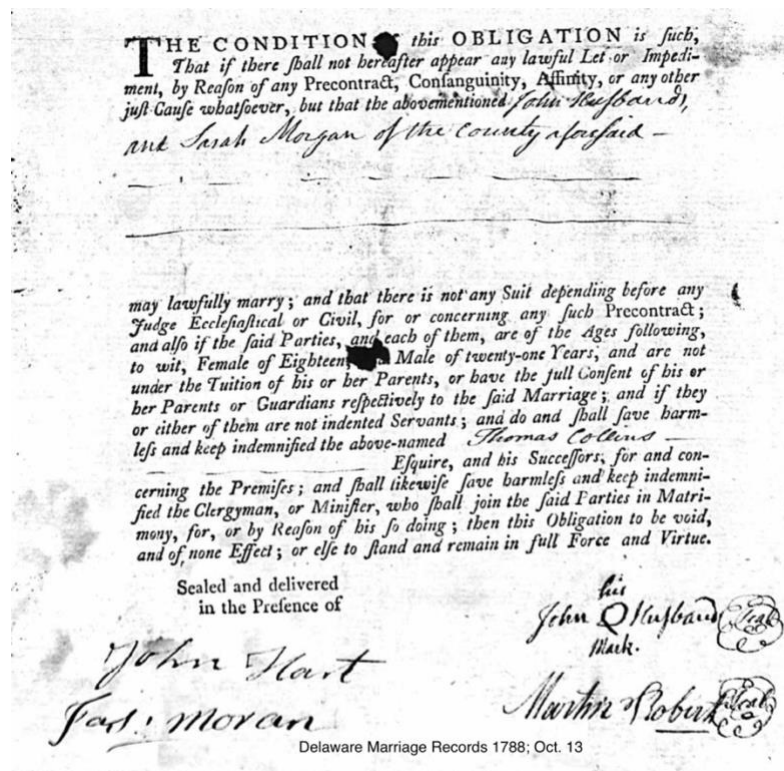 THE CONDITION this OBLIGATION is ſuch,
That if there ſhall not hereafter appear any lawful Let or Impedi-
ment, by Reaſon of any Precontract, Conſanguinity, Affinity, or any other
juſt Cauſe whatſoever, but that the abovementioned John Huſband,
and Sarah Morgan of the County aforſaid —
may lawfully marry; and that there is not any Suit depending before any
Judge Eccleſiaſtical or Civil, for or concerning any ſuch Precontract;
and alſo if the ſaid Parties, and each of them, are of the Ages following,
to wit, Female of Eighteen, Male of twenty-one Years, and are not
under the Tuition of his or her Parents, or have the full Conſent of his or
her Parents or Guardians reſpectively to the ſaid Marriage; and if they
or either of them are not indented Servants; and do and ſhall ſave harm-
leſs and keep indemnified the above-named Thomas Collins —
Eſquire, and his Succeſſors, for and con-
cerning the Premiſes; and ſhall likewiſe ſave harmleſs and keep indemni-
fied the Clergyman, or Miniſter, who ſhall join the ſaid Parties in Matri-
mony, for, or by Reaſon of his ſo doing; then this Obligation to be void,
and of none Effect; or elſe to ſtand and remain in full Force and Virtue.
Sealed and delivered
in the Preſence of
his
John O Huſband Seal
Mark.
John Hart
Martin Robert Seal
Jas. Moran
Delaware Marriage Records 1788; Oct. 13